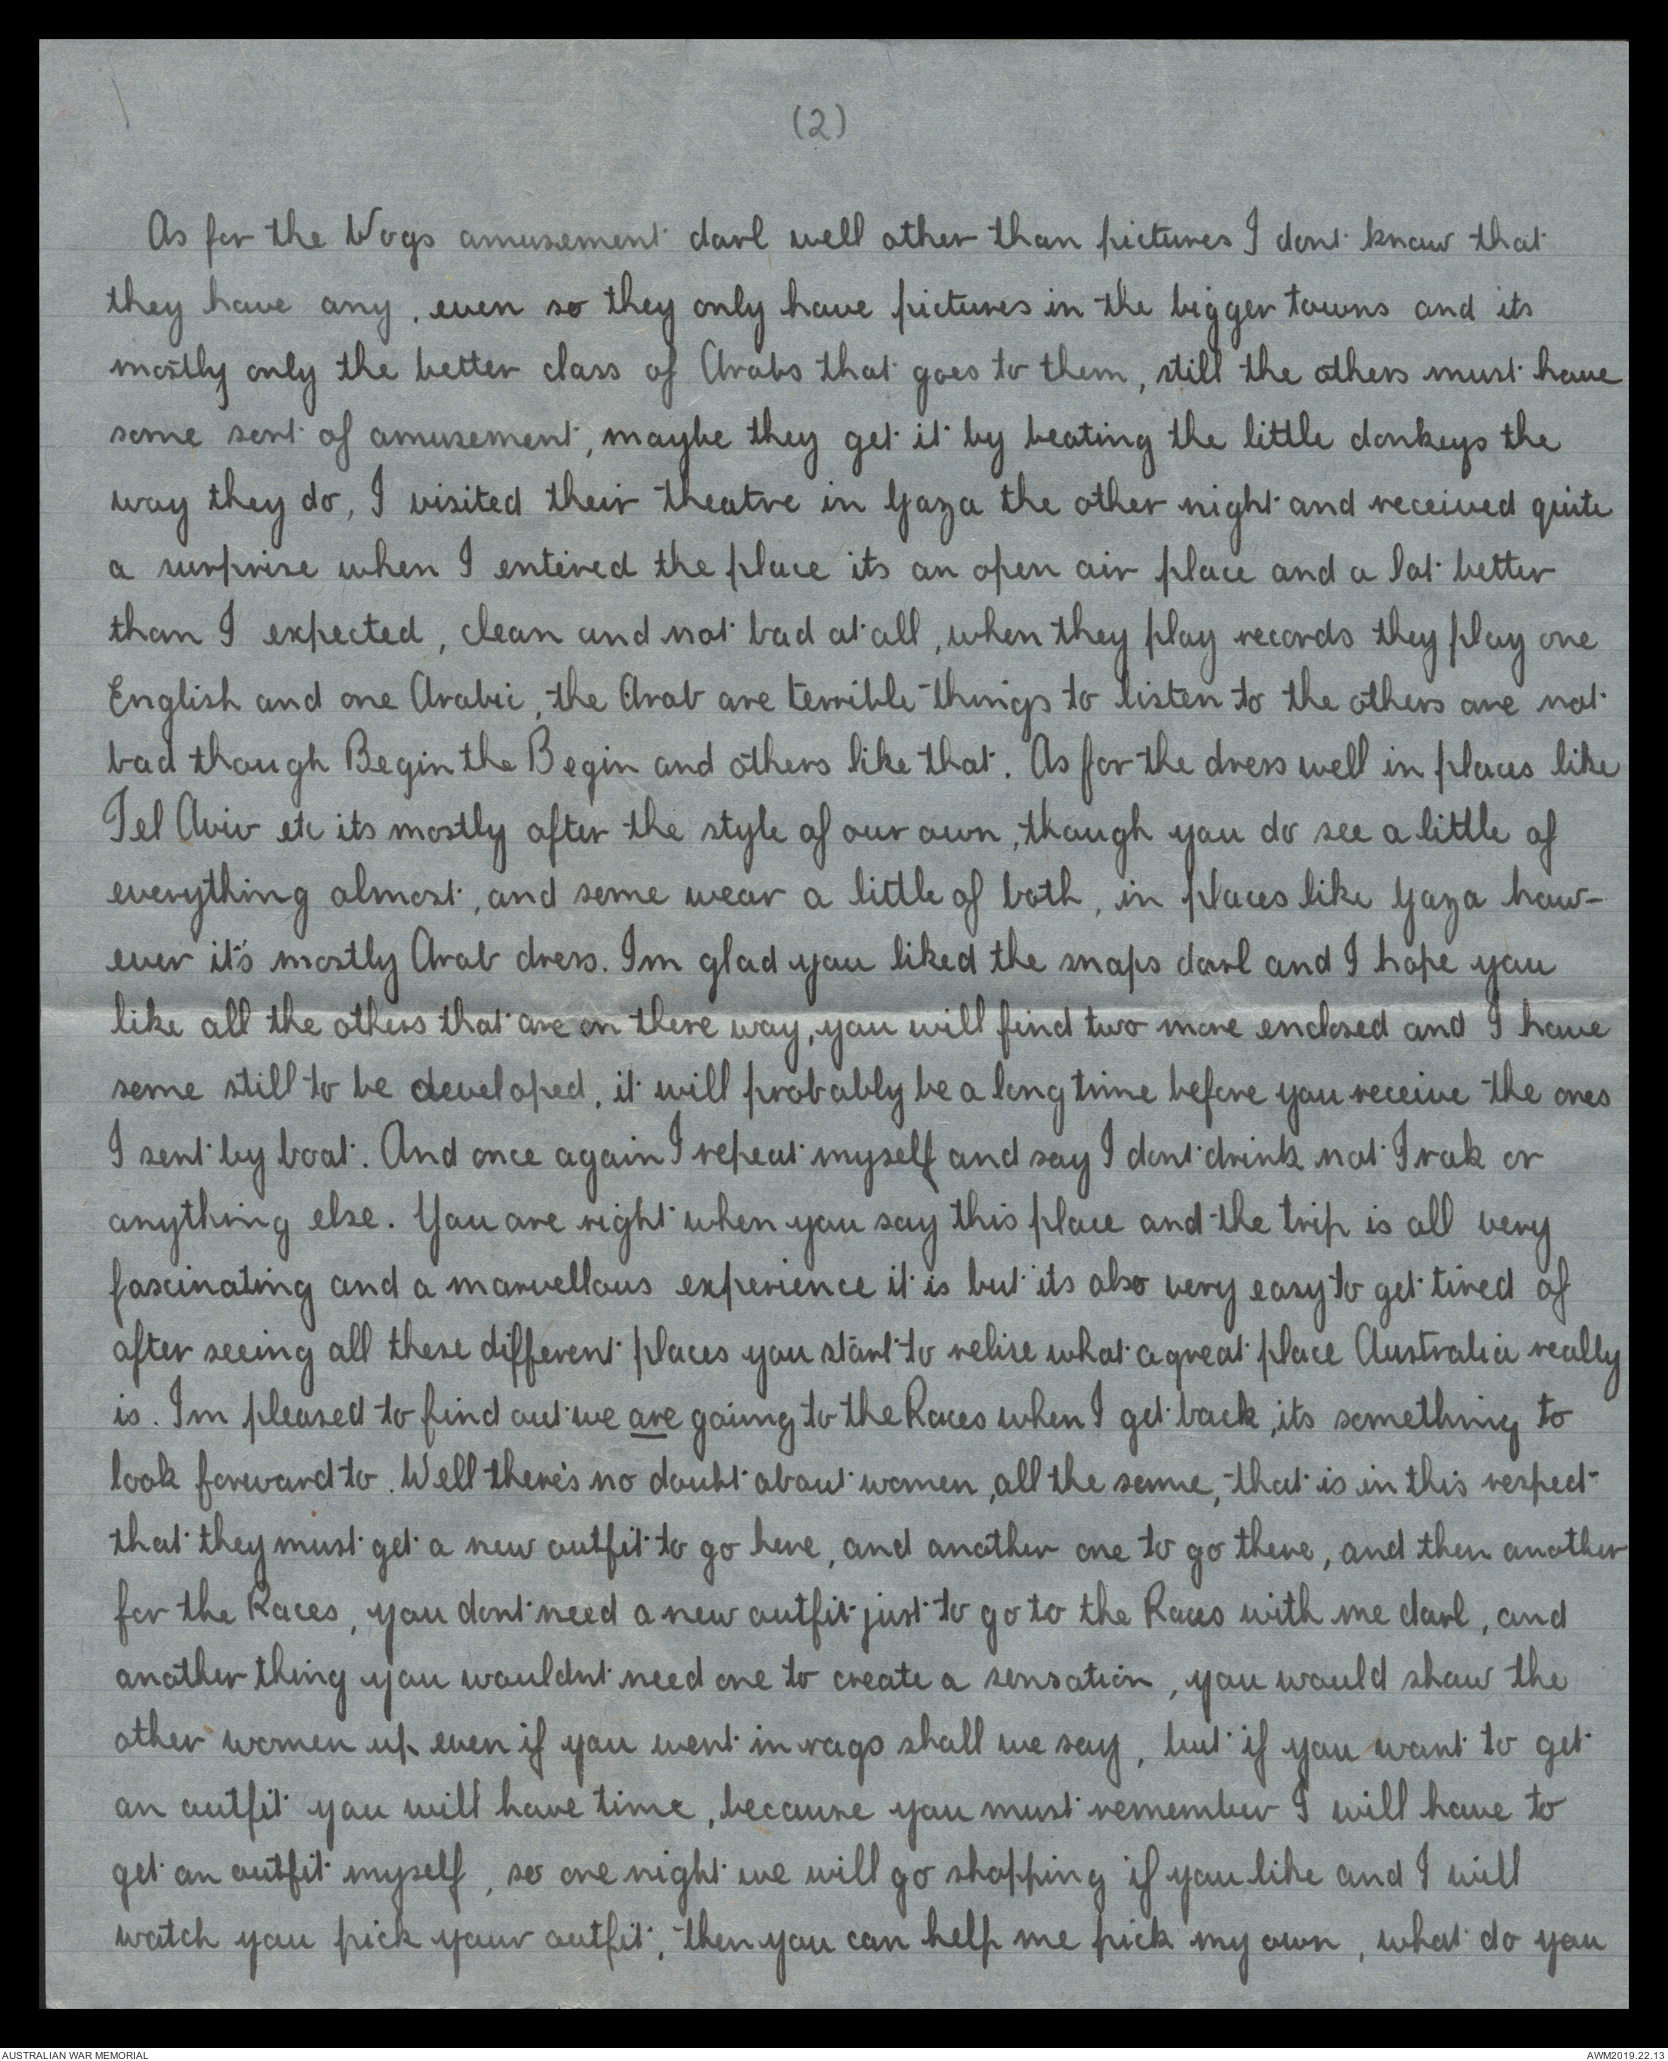 (2)
As for the Wogs amusement darl well other than pictures I dont know that
they have any, even so they only have pictures in the bigger towns and its
mostly only the better class of Arabs that goes to them, still the others must have
some sort of amusement, maybe they get it by beating the little donkeys the
way they do, I visited their theatre in Gaza the other night and received quite
a surprise when I entired the place its an open air place and a lot better
than I expected, clean and not bad at all, when they play records they play one
English and one Arabic, the Arab are terrible things to listen to the others are not
bad though Begin the Begin and others like that. As for the dress well in places like
Tel Aviv etc its mostly after the style of our own, though you do see a little of
everything almost, and some wear a little of both, in places like Gaza how-
ever it's mostly Arab dress. Im glad you liked the snaps darl and I hope you
like all the others that are on there way, you will find two more enclosed and I have
some still to be developed, it will probably be a long time before you receive the ones
I sent by boat. And once again I repeat myself and say I dont drink not Irak or
anything else. You are right when you say this place and the trip is all very
fascinating and a marvellous experience it is but its also very easy to get tired of
after seeing all these different places you start to relise what a great place Australia really
is. Im pleased to find out we are going to the Races when I get back, its something to
look forward to. Well there's no doubt about women, all the same, that is in this respect
that they must get a new outfit to go here, and another one to go there, and then another
for the Races, you dont need a new outfit just to go to the Races with me darl, and
another thing you wouldnt need one to create a sensation, you would show the
other women up even if you went in rags shall we say, but if you want to get
an outfit you will have time, because you must remember I will have to
get an outfit myself, so one night we will go shopping if you like and I will
watch you pick your outfit, then you can help me pick my own, what do you
AUSTRALIAN WAR MEMORIAL
AWM2019.22.13